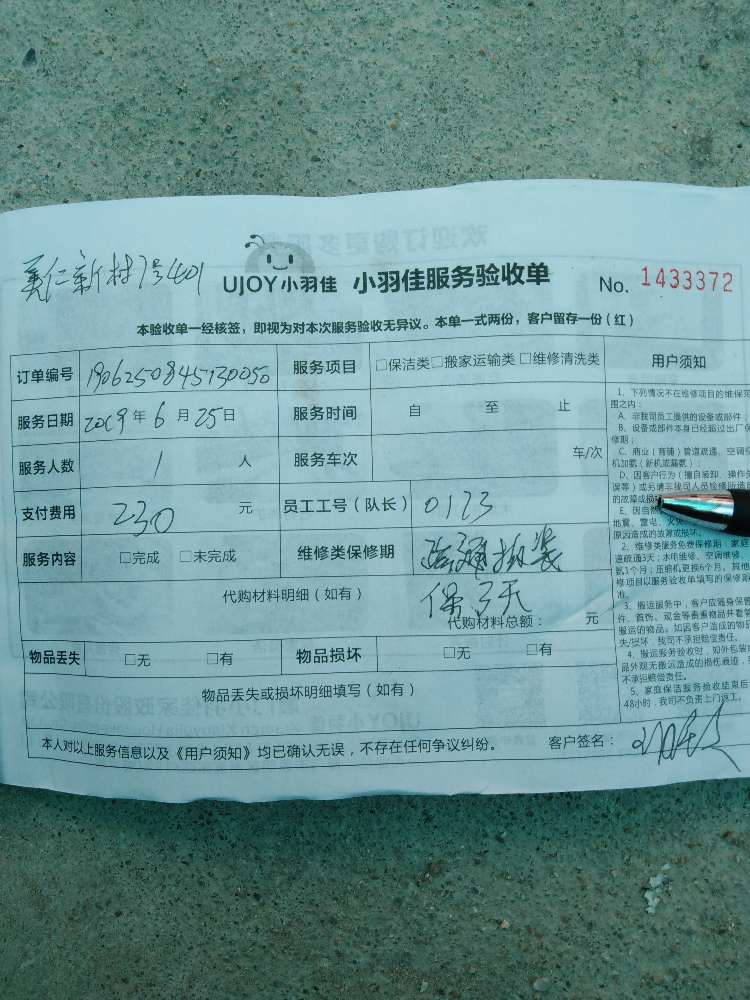 美仁新村7号401
UJOY小羽佳 小羽佳服务验收单 No. 1433372
本验收单一经核签，即视为对本次服务验收无异议。本单一式两份，客户留存一份（红）
订单编号 1906250845130050 服务项目 □保洁类□搬家运输类□维修清洗类 用户须知
服务日期 2019年6月25日 服务时间 自 至 止
服务人数 1 人 服务车次 车/次
支付费用 230 元 员工工号（队长） 0123
服务内容 □完成 □未完成 维修类保修期 疏通拆装
保3天
代购材料明细（如有）
代购材料总额： 元
物品丢失 □无 □有 物品损坏 □无 □有
物品丢失或损坏明细填写（如有）
本人对以上服务信息以及《用户须知》均已确认无误，不存在任何争议纠纷。 客户签名：
1、下列情况不在维修项目的维保范
围之内：
A、非我司员工提供的设备或部件；
B、设备或部件本身已经超过出厂保
修期；
C、商业（商铺）管道疏通、空调
机加氨（新机或漏氨）；
D、因客户行为（擅自装卸、操作失
误等）或另请非我司人员检修所造
的故障或损
E、因自然
地震、雷电、火灾
原因造成的故障或损坏。
2、维修类服务免费保修期：家庭
道疏通3天；水电维修、空调维修、
氨1个月；压缩机更换6个月，其他
修项目以服务验收单填写的保修期
准。
3、搬运服务中，客户应随身保管
件、首饰、现金等贵重物品并看管
搬运的物品。如因客户造成的物品
失/损坏，我司不承担赔偿责任。
4、搬运服务验收时，如外包装
品外观无搬运造成的损伤痕迹，
不承担赔偿责任。
5、家庭保洁服务验收结束后
48小时，我司不负责上门返工。